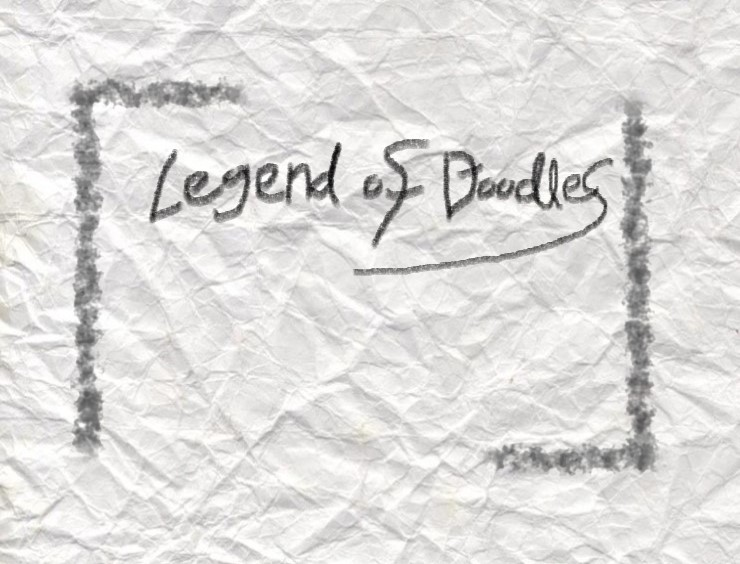 Legend of Doodles